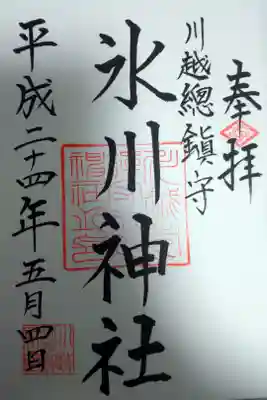 奉拝
川越總鎮守
氷川神社
平成二十四年五月四日